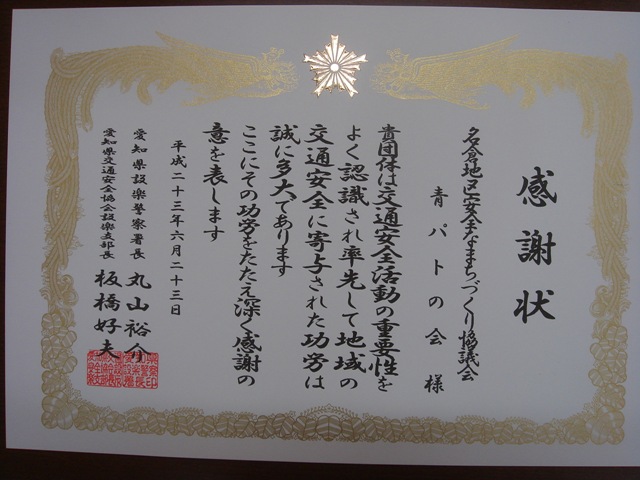 感謝状
名倉地区安全なまちづくり協議会
青パトの会 様
貴団体は交通安全活動の重要性を
よく認識され率先して地域の
交通安全に寄与された功労は
誠に多大であります
ここにその功労をたたえ深く感謝の
意を表します
平成二十三年六月二十三日
愛知県設楽警察署長 丸山裕介
愛知県交通安全協会設楽支部長 板橋好夫